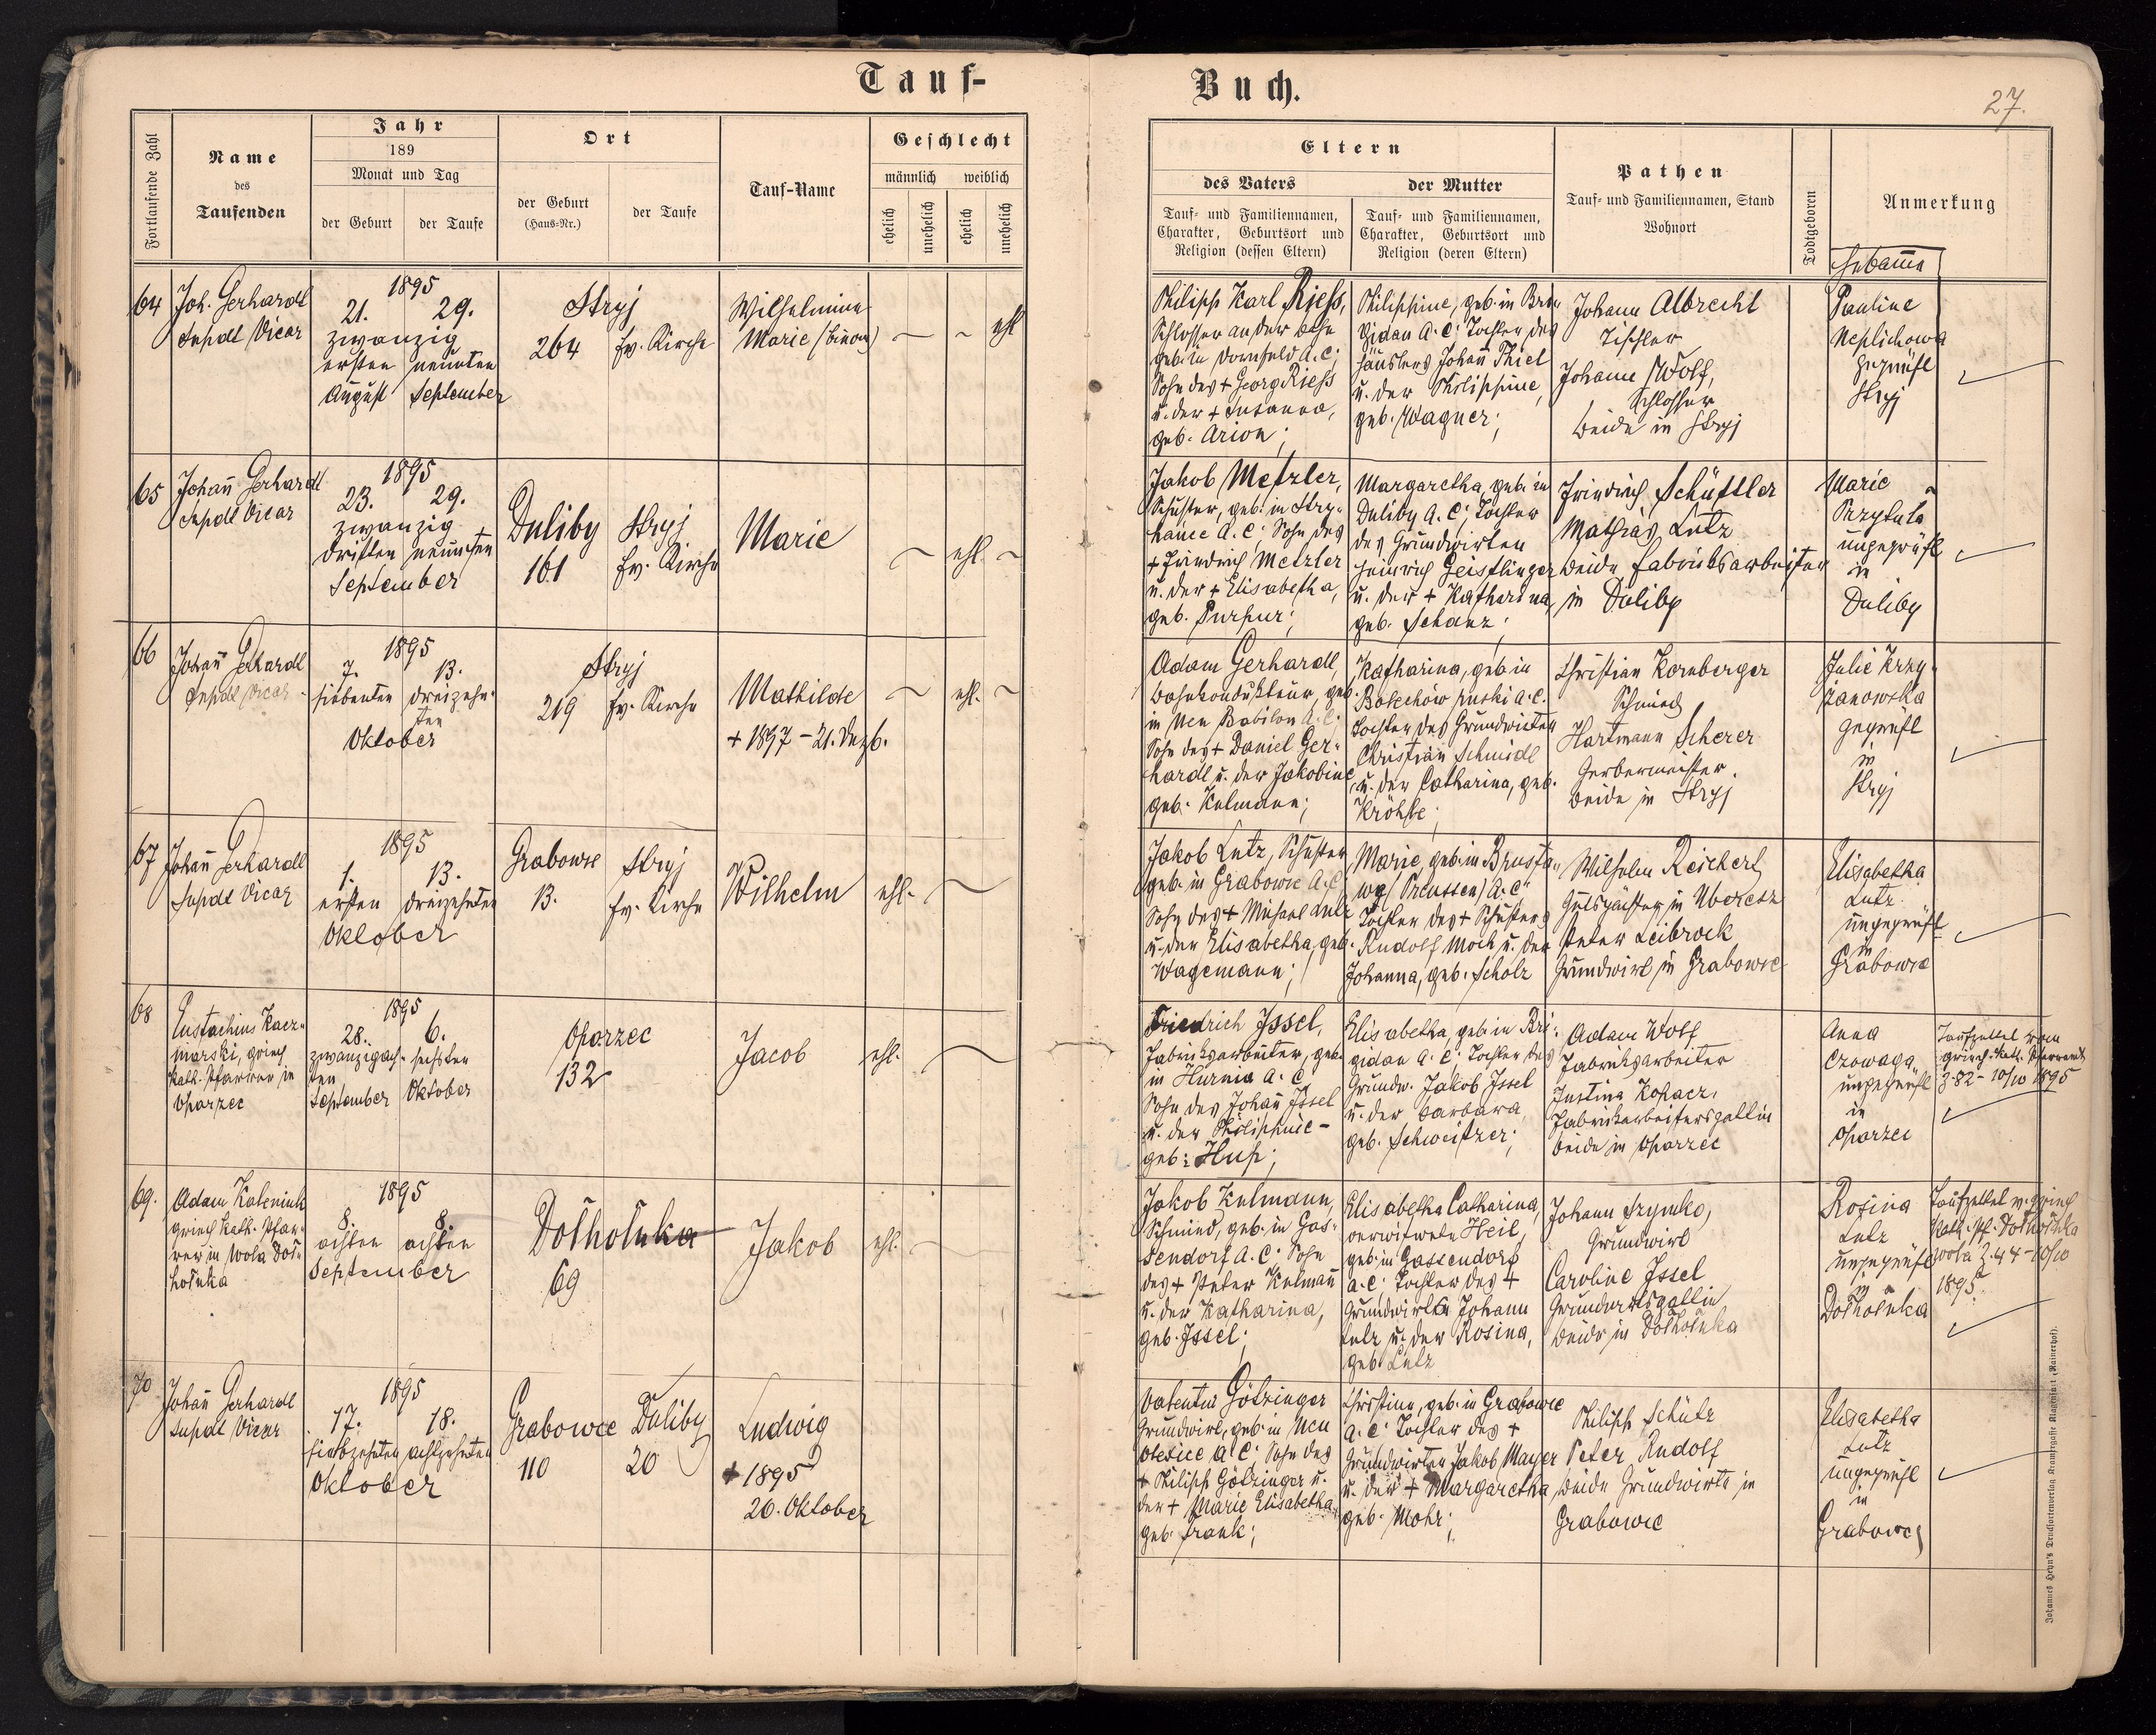 Tauf-
Buch.
27.
Fortlaufende Zahl
Name
des
Taufenden
Jahr
189
Monat und Tag
der Geburt
der Taufe
Ort
der Geburt
(Haus-Nr.)
der Taufe
Tauf-Name
Geschlecht
männlich
weiblich
ehelich
unehelich
ehelich
unehelich
Eltern
des Vaters
Tauf- und Familiennamen,
Charakter, Geburtsort und
Religion (dessen Eltern)
der Mutter
Tauf- und Familiennamen,
Charakter, Geburtsort und
Religion (deren Eltern)
Pathen
Tauf- und Familiennamen, Stand
Wohnort
Todtgeboren
Anmerkung
Hebamme
64
Joh. Gerhardt
Supdt Vicar
1895
21. 29.
zwanzig
ersten neunten
August September
Stryj
264 Ev. Kirche
Wilhelmine
Marie
ehl
Philipp Karl Riess,
Schlosser an der Bahn
geb. in Dornfeld A.C;
Sohn des + Georg Riess
u. der + Susanna,
geb. Arion;
Philippine, geb. in Bri-
gidau A.C; Tochter des
Häuslers Johann Thiel
u. der Philippine,
geb. Wagner;
Johann Albrecht
Tischler
Johann Wolf,
Schlosser
beide in Stryj
Pauline
Neplichowa
geprüft
Stryj
65
Johann Gerhardt
Supdt Vicar
1895
23. 29.
zwanzig
dritten neunten
September
Duliby
161
Stryj
Ev. Kirche
Marie
ehl.
Jakob Metzler,
Schuster, geb. in Stry-
hance A.C; Sohn des
+ Friedrich Metzler
u. der + Elisabetha,
geb. Purpur;
Margaretha, geb. in
Duliby A.C; Tochter
des Grundwirten
Heinrich Geistlinger
u. der + Katharina,
geb. Schanz;
Friedrich Schüttler
Mathias Lutz
beide Fabriksarbeiter
in Duliby
Marie
Przytula
ungeprüft
in
Duliby
66
Johann Gerhardt
Supdt Vicar
1895
7. 13.
siebenten dreizehn-
ten
Oktober
Stryj
219 Ev. Kirche
Mathilde
+ 1897 - 21. Dezb.
ehl.
Adam Gerhardt,
Bahnkondukteur, geb.
in Neu Babilon A.C;
Sohn des + Daniel Ger-
hardt u. der Jakobine
geb. Kulmann;
Katharina, geb. in
Bolechów ruski A.C.
Tochter des Grundwirten
Christian Schmidt
u. der Catharina, geb.
Christian Kornberger
Schmied
Hartmann Scherer
Gerbermeister.
beide in Stryj
Julie Krzy-
żanowska
geprüft
in
Stryj
67
Johann Gerhardt
Supdt Vicar
1895
1. 13.
ersten dreizehnten
Oktober
Grabowce
13.
Stryj
Ev. Kirche
Wilhelm
ehl.
Jakob Lutz, Schuster
geb. in Grabowce A.C
Sohn des + Michael Lutz
u. der Elisabetha, geb.
Wagemann;
Marie, geb. in Brusta-
wa (Preussen) A.C;
Tochter des + Schusters
Rudolf Moch u. der
Johanna, geb. Scholz
Wilhelm Reichert
Gutspächter in Uberesz
Peter Leibrock
Grundwirt in Grabowce
Elisabetha
Lutz
ungeprüft
in
Grabowce
68
Eustachius Kacz-
marski, griech.
kath. Pfarrer in
Oparzec
1895
28. 6.
zwanzigach- sechsten
ten
September Oktober
Oparzec
132
Jacob
ehl.
Friedrich Issel,
Fabriksarbeiter, geb.
in Hurnia A.C,
Sohn des Johann Issel
u. der Philippine -
geb: Hup;
Elisabetha, geb. in Bri-
gidau A.C; Tochter des
Grundw. Jakob Issel
u. der Barbara
geb. Schweitzer;
Adam Wolf
Fabriksarbeiter
Justina Kopacz,
Fabriksarbeitersgattin
beide in Oparzec
Anna
Czowaga
ungeprüft
in
Oparzec
Taufzettel vom
griech. Kath. Pfarramt
Z. 82 - 10/10 1895
69.
Adam Kaleniuk
griech kath. Pfar-
rer in Wola Doł-
hołuka
1895
8. 8.
achten achten
September
Dołhołuka
69
Jakob
ehl.
Jakob Kulmann,
Schmied, geb. in Gas-
sendorf A.C; Sohn
des + Peter Kulmann
u. der Katharina,
geb. Issel;
Elisabetha Catharina,
verwitwete Heil,
geb. in Gassendorf
A.C; Tochter des +
Grundwirten Johann
Lutz u. der Rosina,
geb. Lutz
Johann Szymko,
Grundwirt
Caroline Issel
Grundwirtsgattin
beide in Dołhołuka
Rosina
Lutz
ungeprüft
in
Dołhołuka
Taufzettel v. griech
kath. Pf. Dołhołuka
wola Z. 44 - 10/10
1895.
70
Johann Gerhardt
Supdt Vicar
1895
17. 18.
siebzehnten achtzehnten
Oktober
Grabowce
110
Duliby
20
Ludwig
+ 1895
20. Oktober
Valentin Götzinger
Grundwirt, geb. in Neu
Oleksice A.C; Sohn des
+ Philipp Götzinger u.
der + Marie Elisabetha,
geb. Frank;
Christine, geb. in Grabowce
A.C; Tochter des +
Grundwirten Jakob Mayer
u. der + Margaretha,
geb. Mohr;
Philipp Schütz
Peter Rudolf
beide Grundwirte in
Grabowce
Elisabetha
Lutz
ungeprüft
in
Grabowce
Johannes Heyn's Drucksortenverlag Kramergasse Klagenfurt (Rainerhof).